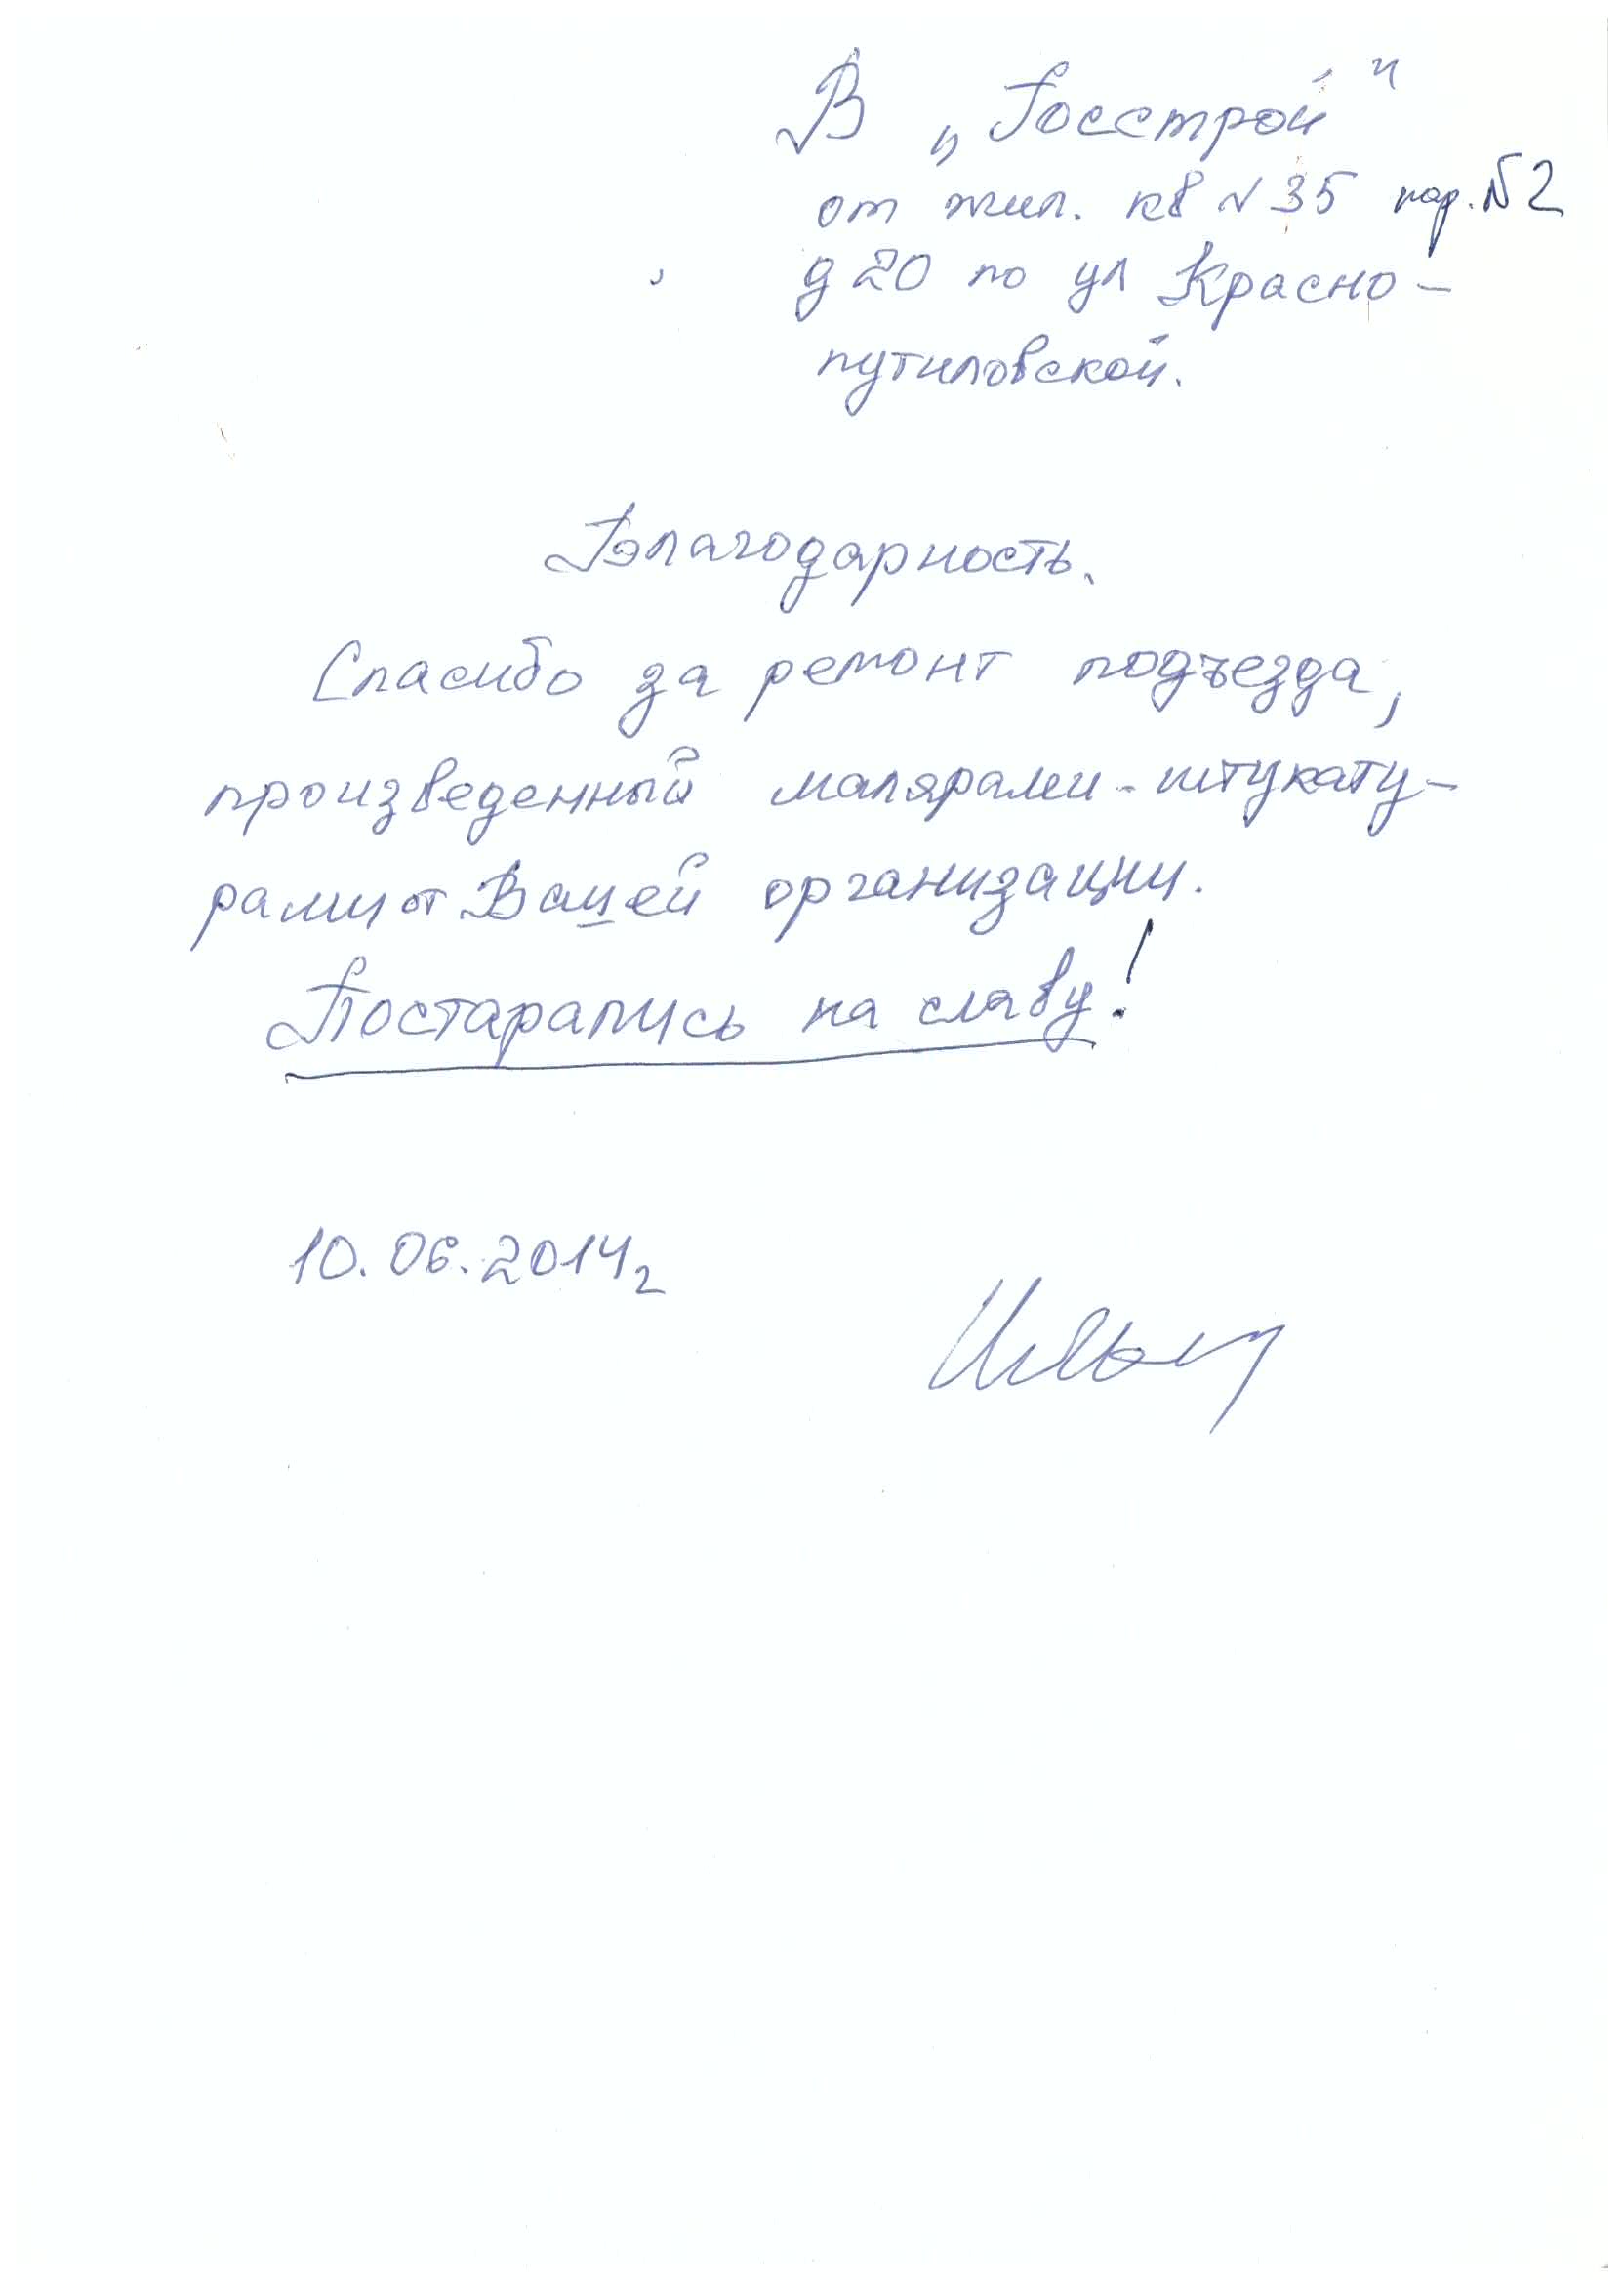 В „Госстрой"
от жил. кв № 35 пар. № 2
д 20 по ул Красно-
путиловской.
Благодарность.
Спасибо за ремонт подъезда,
произведенный малярами-штукату-
рами от Вашей организации.
Постарались на славу!
10.06.2014г